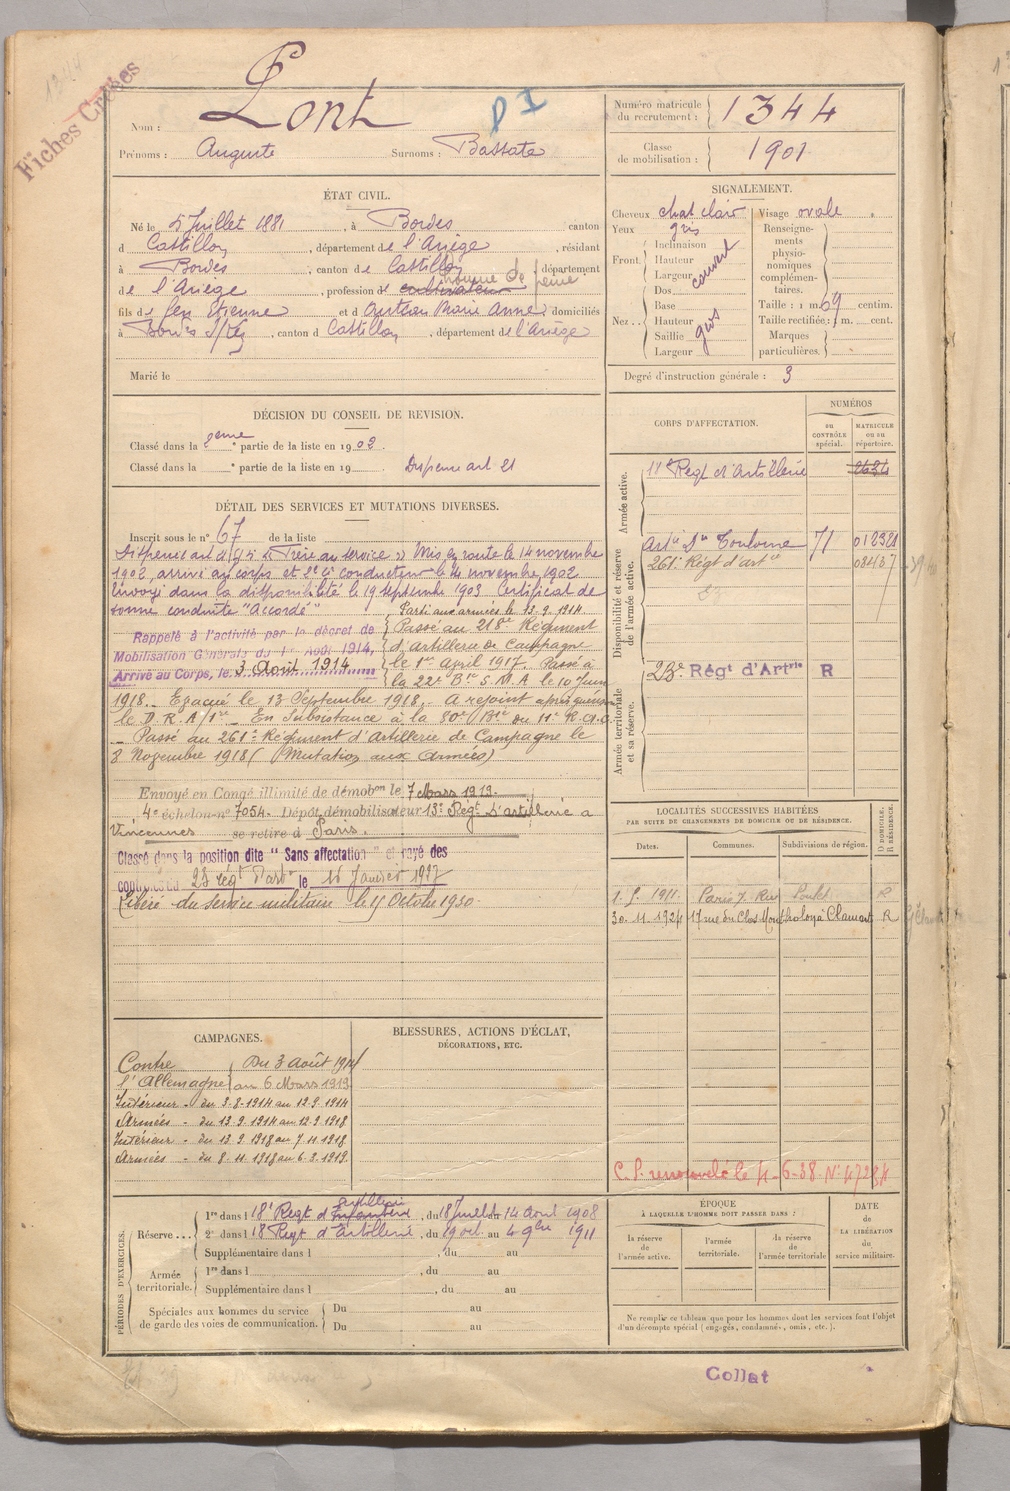 1344
Fiches Créées
Nom : Pont
P I
Prénoms : Auguste Surnoms : Bastate
Numéro matricule du recrutement : 1344
Classe de mobilisation : 1901
ÉTAT CIVIL.
Né le 5 Juillet 1881, à Bordes, canton
d Castillon, département de l'Ariège, résidant
à Bordes, canton de Castillon, département
de l'Ariège, profession de cultivateur homme de peine
fils de feu Etienne et d Marie Anne domiciliés
à Bordes s/Lez, canton d Castillon, département de l'Ariège
Marié le
SIGNALEMENT.
Cheveux chat clair Visage ovale
Yeux gris
Front. Inclinaison
Hauteur
Largeur couvert
Nez .. Dos
Base
Hauteur gros
Saillie
Largeur
Renseignements physionomiques complémentaires.
Taille : 1 m. 69 centim.
Taille rectifiée : 1 m. cent.
Marques particulières.
Degré d'instruction générale : 3
DÉCISION DU CONSEIL DE REVISION.
Classé dans la 2eme partie de la liste en 1902.
Classé dans la e partie de la liste en 19 Dispensé art 21
DÉTAIL DES SERVICES ET MUTATIONS DIVERSES.
Inscrit sous le n° 67 de la liste
au service » Mis en route le 14 novembre
1902, arrivé au corps et 2e cr conducteur le 14 novembre 1902
Envoyé dans la disponibilité le 19 septembre 1903 Certificat de
bonne conduite "Accordé"
Rappelé à l'activité par le décret de
Mobilisation Générale du 1er Août 1914,
Arrivé au Corps, le 3 Août 1914
Parti aux armées le 13.9.1914
Passé au 218e Régiment
d'artillerie de Campagne
le 1er April 1917. Passé à
la 22e Bie S.M.A le 10 Juin
1918. Evacué le 13 Septembre 1918. A rejoint après guérison
le D.R.A/1re En Subsistance à la 80e Bie du 11e R.A.C.
Passé au 261e Régiment d'Artillerie de Campagne le
8 Novembre 1918 (Mutation aux Armées)
Envoyé en Congé illimité de démobon le 7 Mars 1919.
4e échelon n° 7054. Dépôt démobilisateur 13e Régt d'artillerie à
Vincennes se retire à Paris.
Classé dans la position dite "Sans affectation" et rayé des
contrôles du 23 régt d'artie le 15 Janvier 1927
Libéré du service militaire le 15 Octobre 1930.
CORPS D'AFFECTATION.
NUMÉROS
au contrôle spécial.
matricule ou au répertoire.
Armée active.
18e Régt d'Artillerie
Disponibilité et réserve de l'armée active.
Artie Don Toulouse 71 012321
261e Régt d'artie 08487
Armée territoriale et sa réserve.
23e Régt d'Artrie R
LOCALITÉS SUCCESSIVES HABITÉES
PAR SUITE DE CHANGEMENTS DE DOMICILE OU DE RÉSIDENCE.
Dates. Communes. Subdivisions de région. D DOMICILE, R RÉSIDENCE.
1.9.1911. Paris 7. Rue Poulet R
30.11.1924 17 rue du Clos Montholon à Clamart R
C.P. renouvelé le 4-6-38
CAMPAGNES.
Contre l'Allemagne
Du 3 Août 1914
au 6 Mars 1919
Intérieur - du 3-8-1914 au 12.9.1914
Armées - du 13.9.1914 au 12.9.1918
Intérieur - du 13.9.1918 au 7.11.1918
Armées - du 8.11.1918 au 6.3.1919.
BLESSURES, ACTIONS D'ÉCLAT,
DÉCORATIONS, ETC.
PÉRIODES D'EXERCICES.
Réserve ...
1re dans l 18e Régt d'Infanterie artillerie, du 18 Juillet au 14 Aout 1908
2e dans l 18 Régt d'Artillerie, du 19 oct. au 4 9bre 1911
Supplémentaire dans l , du au
Armée territoriale.
1re dans l , du au
Supplémentaire dans l , du au
Spéciales aux hommes du service
de garde des voies de communication.
Du au
Du au
ÉPOQUE
À LAQUELLE L'HOMME DOIT PASSER DANS :
la réserve de l'armée active.
l'armée territoriale.
la réserve de l'armée territoriale
DATE de LA LIBÉRATION du service militaire.
Ne remplir ce tableau que pour les hommes dont les services font l'objet
d'un décompte spécial (engagés, condamnés, omis, etc.).
Collat